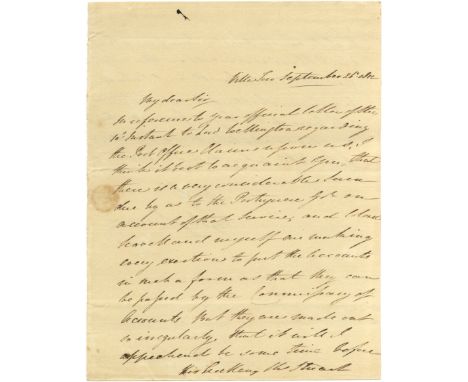 Villa Toro September 26 1812
My dear Sir
In reference to your official letter of the
10th Instant to Lord Wellington regarding
the Post Office Claims upon us, I
think it best to acquaint you, that
there is a very considerable Sum
due by us to the Portuguese Govt on
account of that Service, and
and myself are making
every exertions to put the accounts
in such a form as that they can
be passed by the Commissary of
Accounts but they are made out
so irregularly, that it will I
apprehend be some time before
His Excellency the Stuart